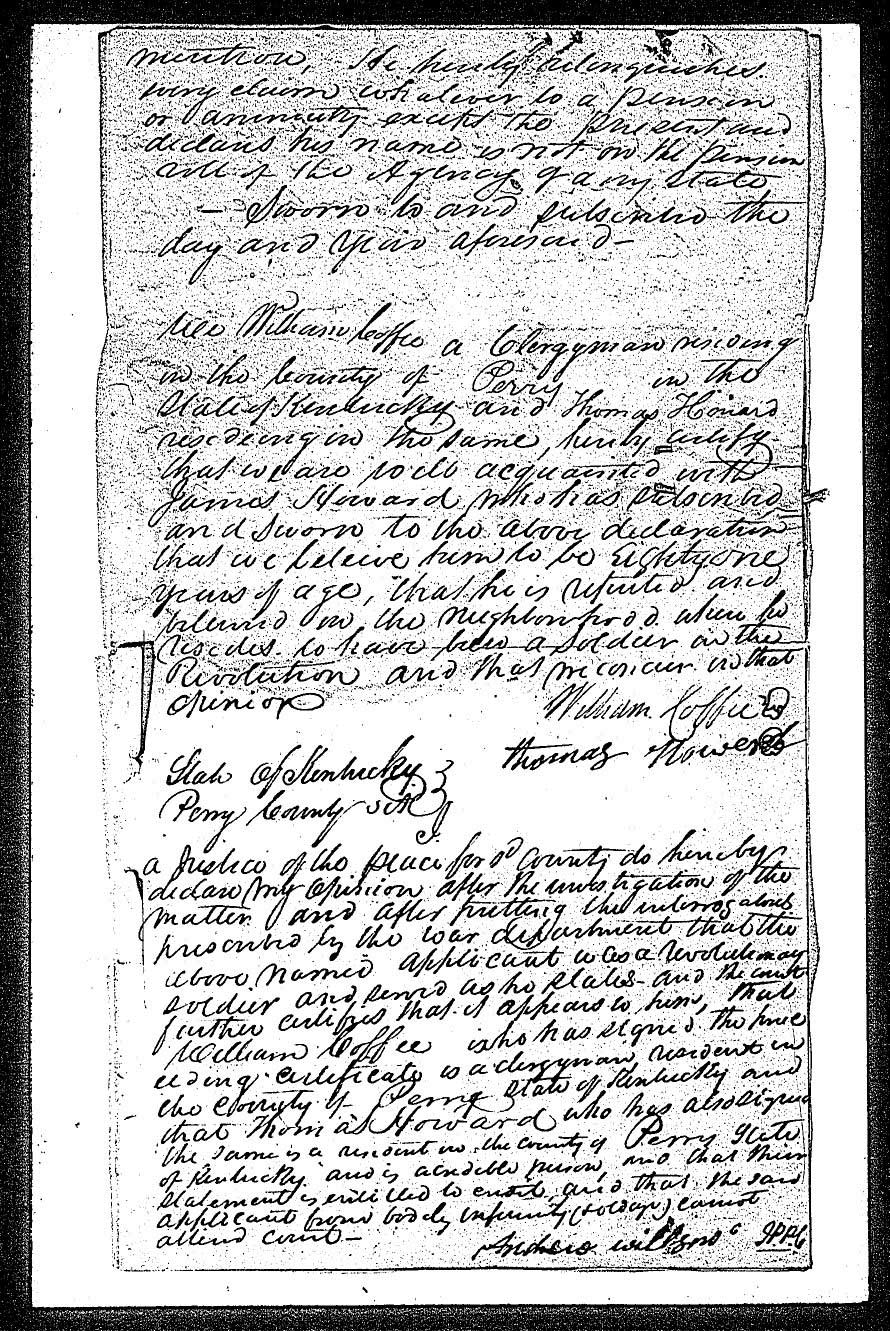 mention, He hereby relinquishes
every claim whatever to a pension
or annuity except the present and
declares his name is not on the pension
roll of the Agency of any state
— Sworn to and subscribed the
day and year aforesaid —
We William Coffee a Clergyman residing
in the County of Perry in the
State of Kentucky and Thomas Howard
resideing in the same, hereby certify
that we are well acquainted with
James Howard who has subscribed
and sworn to the above declaration
that we beleive him to be Eighty one
years of age, that he is reputed and
believed in the neighborhood where he
resides to have been a soldier in the
Revolution and that we concur in that
opinion
William Coffee
Thomas Howard
State of Kentucky
Perry County Sct
a Justice of the peace for sd County do hereby
declare my opinion after the investigation of the
matter and after putting the interrogatories
prescribed by the war department that the
above named applicant was a revolutionary
soldier and served as he states and the court
further certifies that it appears to him, that
William Coffee who has signed the prec
eeding certificate is a clergyman resident in
the County of Perry State of Kentucky and
that Thomas Howard who has also signed
the same is a resident in the county of Perry State
of Kentucky and is a credible person, and that their
statement is entitled to credit and that the said
applicant from bodily infirmity (old age) cannot
attend court —
Andrew Wilson JPPC